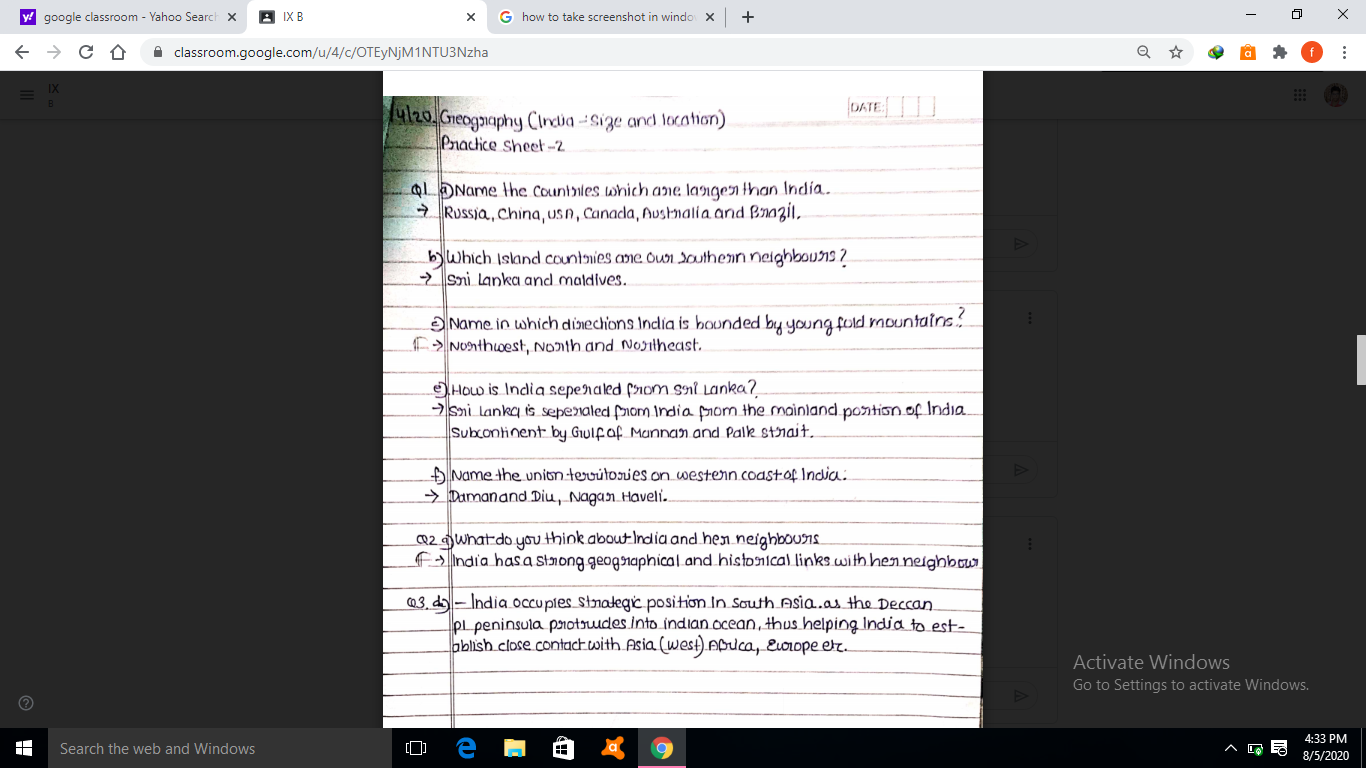 google classroom - Yahoo Search
IX B
how to take screenshot in window
classroom.google.com/u/4/c/OTEyNjM1NTU3Nzha
f
IX
B
DATE
/4/20. Geography (India - Size and location)
Practice Sheet-2
Q1 a) Name the countries which are larger than India.
→ Russia, China, USA, Canada, Australia and Brazil.
b) Which Island countries are our southern neighbours?
→ Sri Lanka and maldives.
c) Name in which directions India is bounded by young fold mountains?
→ Northwest, North and Northeast.
e) How is India seperated from Sri Lanka?
→ Sri Lanka is seperated from India from the mainland portion of India
Subcontinent by Gulf of Mannar and Palk strait.
f) Name the union territories on western coast of India.
→ Daman and Diu, Nagar Haveli.
Q2 g) What do you think about India and her neighbours
→ India has a strong geographical and historical links with her neighbour
Q3. d) - India occupies Strategic position in South Asia. as the Deccan
pl peninsula protrudes into indian ocean, thus helping India to est-
ablish close contact with Asia (West) Africa, Europe etc.
Activate Windows
Go to Settings to activate Windows.
Search the web and Windows
4:33 PM
8/5/2020